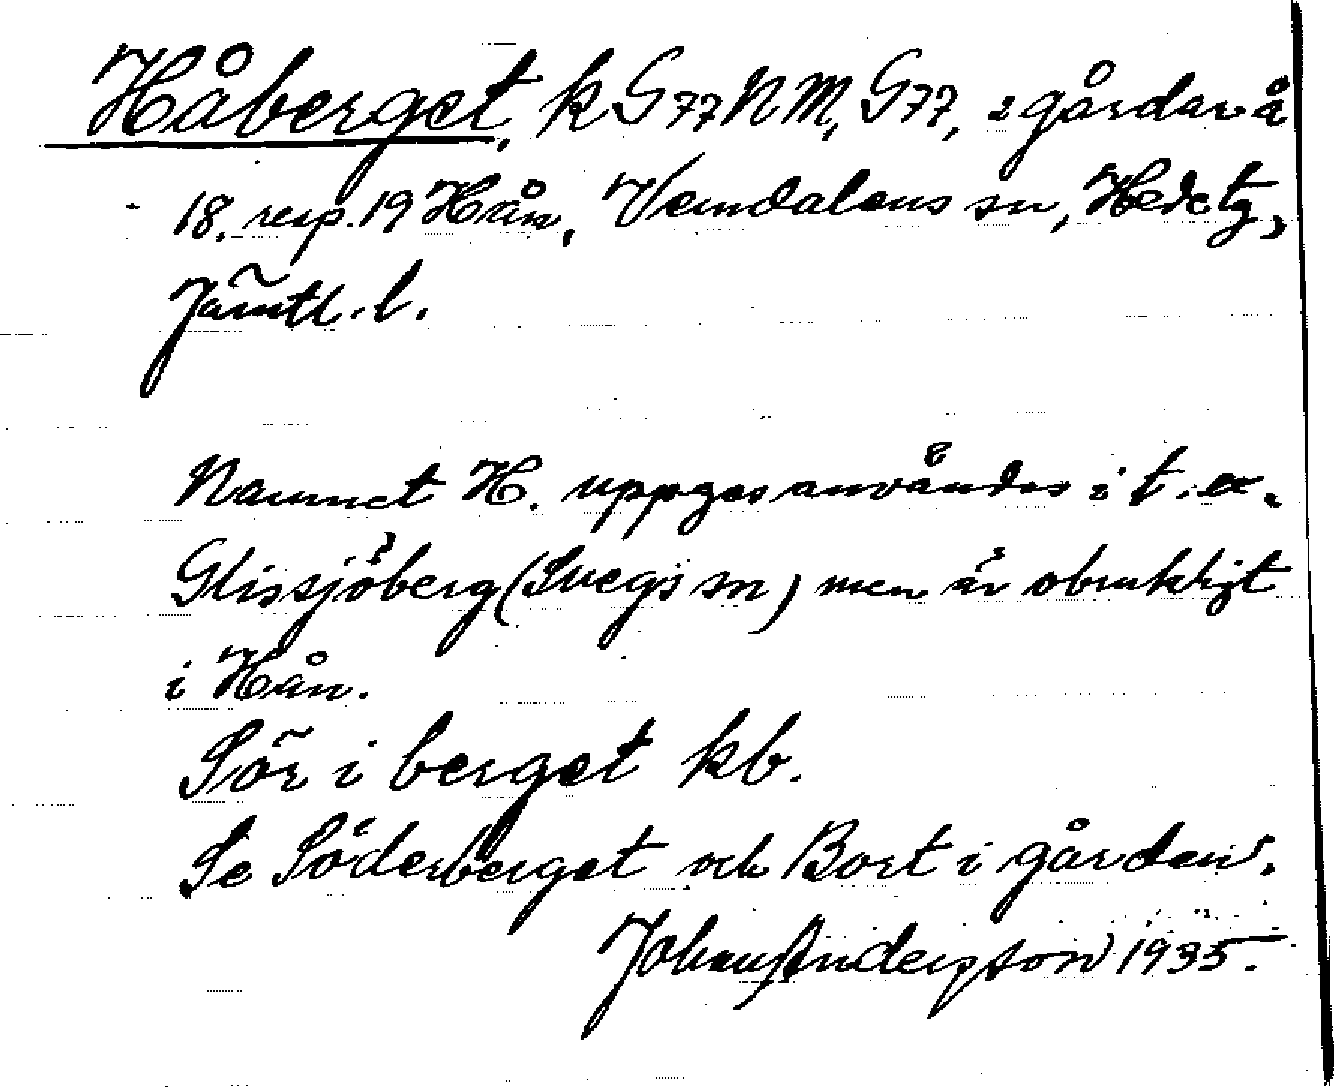 Håberget, k G 77 N M, G 77, 2 gårdar å
18. resp. 19 Hån, Vemdalens sn, Hede tg,
Jämtl. l.
Namnet H. uppges användas i t. ex.
Glissjöberg (Svegs sn) men är obrukligt
i Hån.
Sör i berget kb.
Se Söderberget och Bort i gården.
Johan Anderzson 1935.